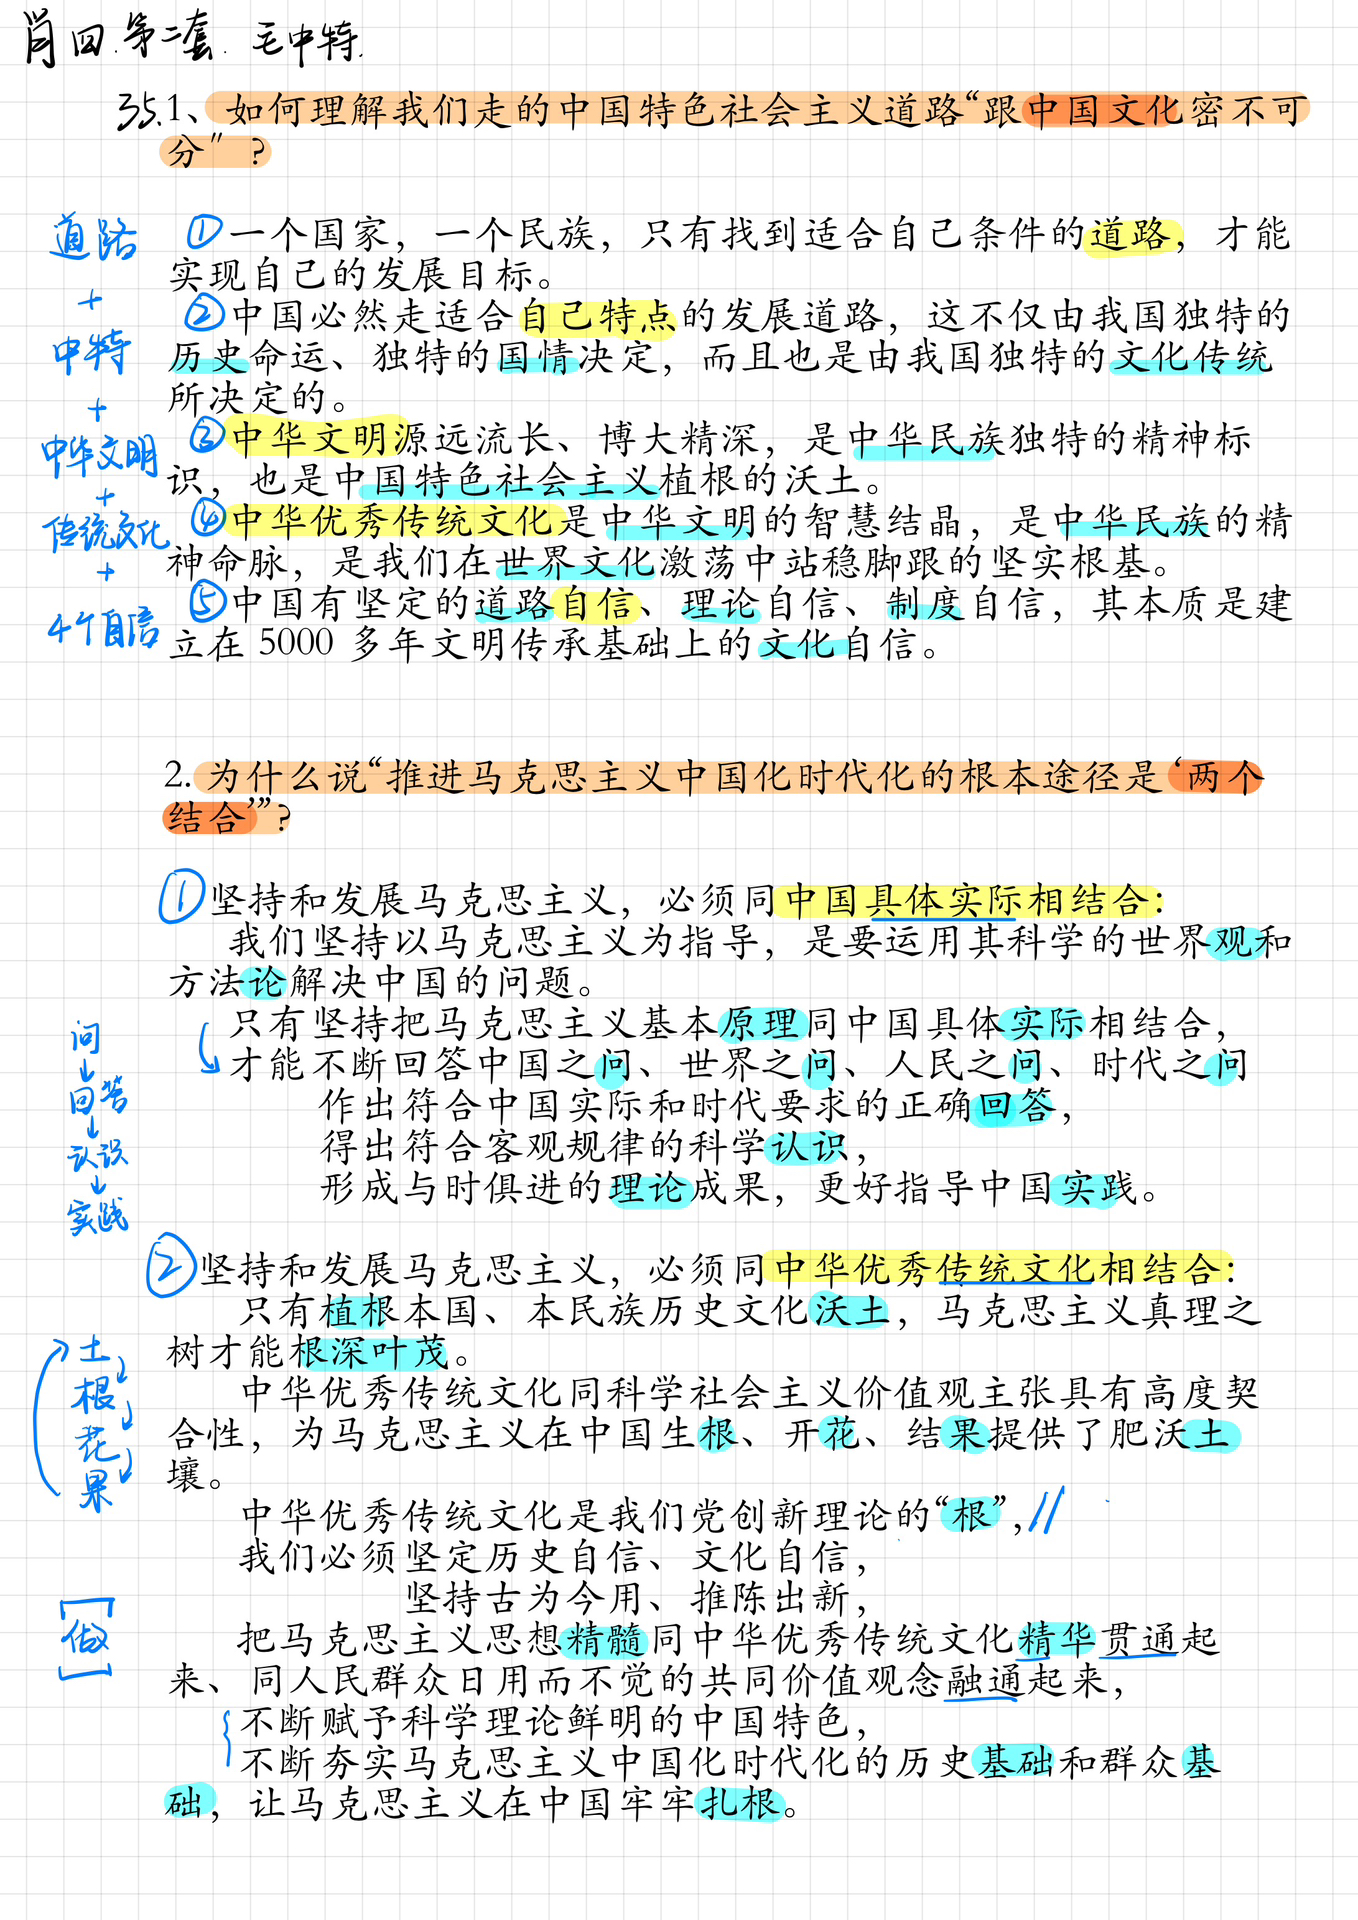 肖四.第二套. 毛中特.
35.1、如何理解我们走的中国特色社会主义道路“跟中国文化密不可
分”？
道路
+
中特
+
中华文明
+
传统文化
+
4个自信
①一个国家，一个民族，只有找到适合自己条件的道路，才能
实现自己的发展目标。
②中国必然走适合自己特点的发展道路，这不仅由我国独特的
历史命运、独特的国情决定，而且也是由我国独特的文化传统
所决定的。
③中华文明源远流长、博大精深，是中华民族独特的精神标
识，也是中国特色社会主义植根的沃土。
④中华优秀传统文化是中华文明的智慧结晶，是中华民族的精
神命脉，是我们在世界文化激荡中站稳脚跟的坚实根基。
⑤中国有坚定的道路自信、理论自信、制度自信，其本质是建
立在 5000 多年文明传承基础上的文化自信。
2. 为什么说“推进马克思主义中国化时代化的根本途径是‘两个
结合’”？
①坚持和发展马克思主义，必须同中国具体实际相结合：
我们坚持以马克思主义为指导，是要运用其科学的世界观和
方法论解决中国的问题。
只有坚持把马克思主义基本原理同中国具体实际相结合，
才能不断回答中国之问、世界之问、人民之问、时代之问
作出符合中国实际和时代要求的正确回答，
得出符合客观规律的科学认识，
形成与时俱进的理论成果，更好指导中国实践。
问
↓
回答
↓
认识
↓
实践
②坚持和发展马克思主义，必须同中华优秀传统文化相结合：
只有植根本国、本民族历史文化沃土，马克思主义真理之
树才能根深叶茂。
中华优秀传统文化同科学社会主义价值观主张具有高度契
合性，为马克思主义在中国生根、开花、结果提供了肥沃土
壤。
土
根
花
果
中华优秀传统文化是我们党创新理论的“根”，//
我们必须坚定历史自信、文化自信，
坚持古为今用、推陈出新，
把马克思主义思想精髓同中华优秀传统文化精华贯通起
来、同人民群众日用而不觉的共同价值观念融通起来，
不断赋予科学理论鲜明的中国特色，
不断夯实马克思主义中国化时代化的历史基础和群众基
础，让马克思主义在中国牢牢扎根。
[做]